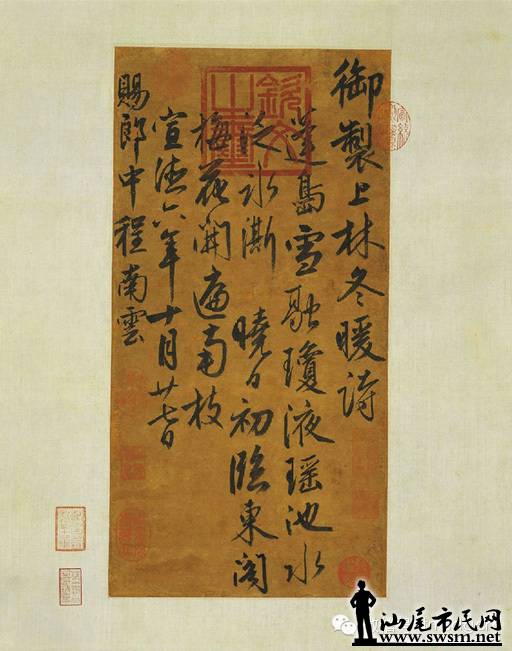 御製上林冬暖詩
蓬島雪融瓊液瑶池水
泛氷澌 曉日初臨東閣
梅花開遍南枝
宣德六年十月廿七日
賜郎中程南雲
欽文之璽
汕尾市民网
www.swsm.net